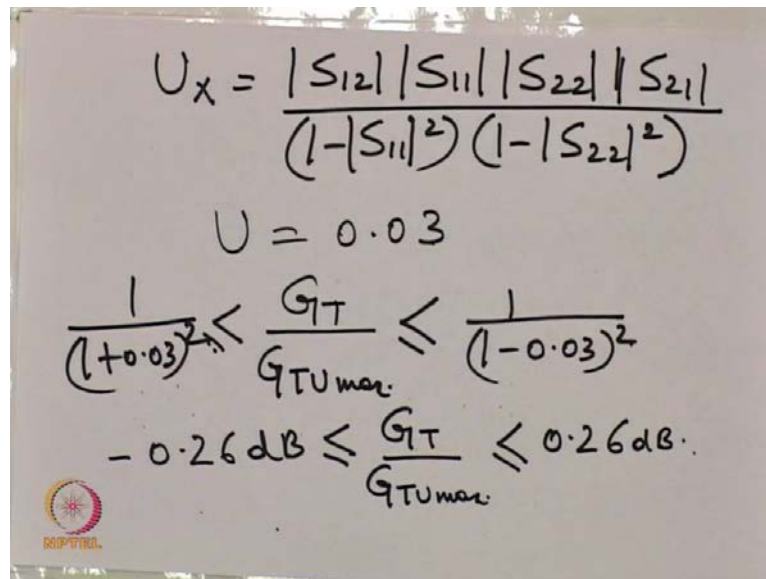 Ux = |S12| |S11| |S22| |S21| / (1-|S11|²) (1-|S22|²)
U = 0.03
1 / (1+0.03)² < GT / GTUmax. ≤ 1 / (1-0.03)²
- 0.26 dB ≤ GT / GTUmax. ≤ 0.26 dB.
NPTEL